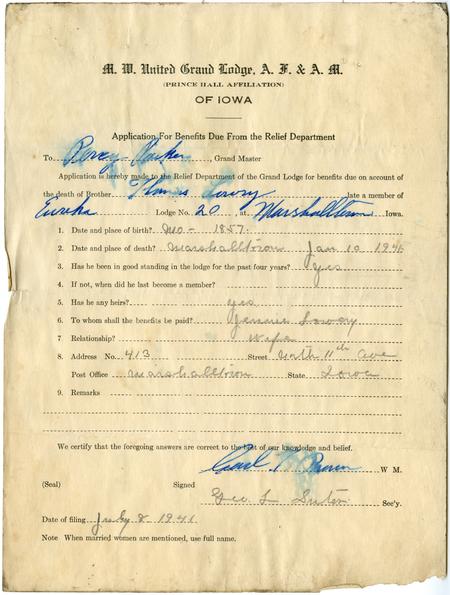 M. W. United Grand Lodge, A. F. & A. M.
(PRINCE HALL AFFILIATION)
OF IOWA
Application For Benefits Due From the Relief Department
To Percy Parker, Grand Master
Application is hereby made to the Relief Department of the Grand Lodge for benefits due on account of
the death of Brother Thomas Lowry late a member of
Eureka Lodge No. 20, at Marshalltown Iowa.
1. Date and place of birth? Mo - 1857.
2. Date and place of death? Marshalltown Jan 10 1941
3. Has he been in good standing in the lodge for the past four years? Yes
4. If not, when did he last become a member?
5. Has he any heirs? yes
6. To whom shall the benefits be paid? Jennie Lowry
7. Relationship? Wife
8. Address No. 413 Street North 11th Ave
Post Office Marshalltown State Iowa
9. Remarks
We certify that the foregoing answers are correct to the best of our knowledge and belief.
Brown W M.
(Seal) Signed
Geo L Sec'y.
Date of filing 1941
Note When married women are mentioned, use full name.